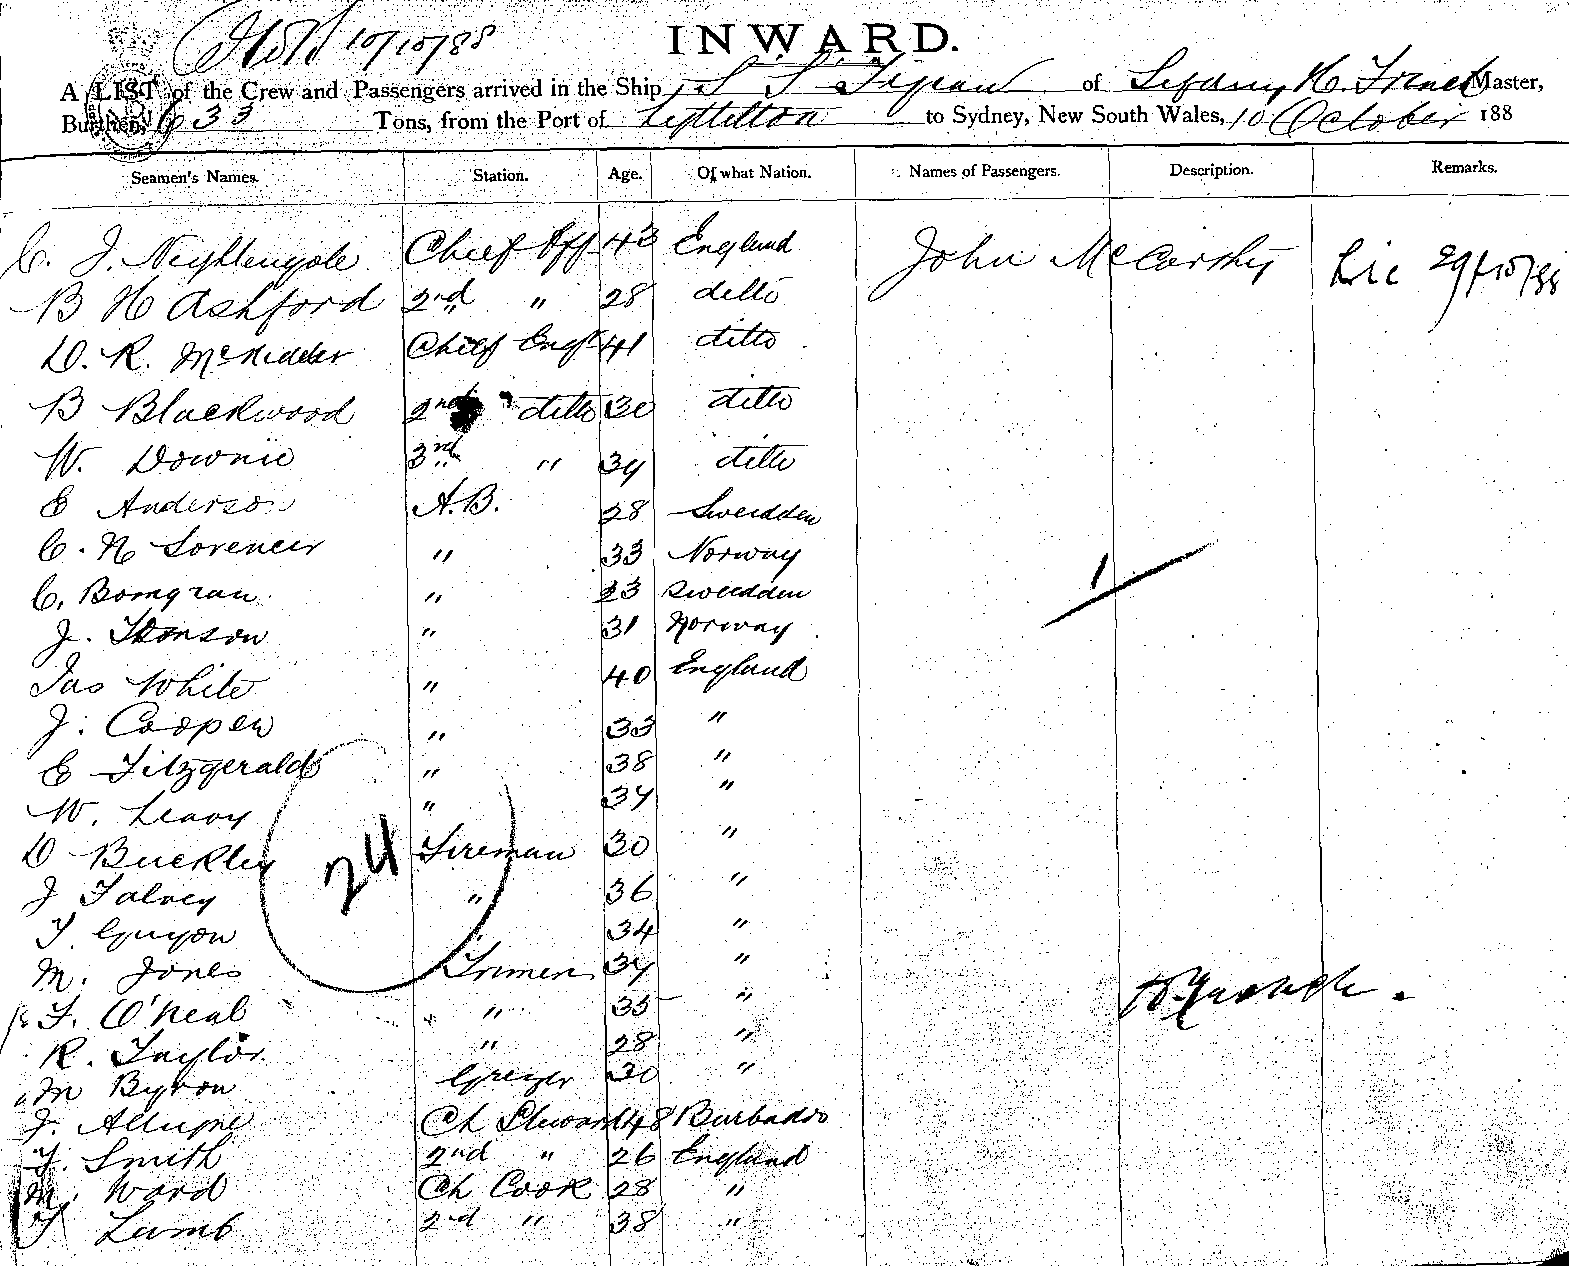 10/10/88
INWARD.
A LIST of the Crew and Passengers arrived in the Ship S S of Sydney, H. Master,
Burthen, 633 Tons, from the Port of Lyttelton to Sydney, New South Wales, 10 October 188
Seamen's Names. Station. Age. Of what Nation. Names of Passengers. Description. Remarks.
C. J. Nightengale Chief Off 43 England John McCarthy
B H Ashford 2nd " 28 ditto
D. R. Chief Engr 41 ditto
B Blackwood 2nd ditto 30 ditto
W. Downie 3rd " 34 ditto
C Anderson A.B. 28 Sweedden
C. N Sorencer " 33 Norway
C. Bomgran " 23 Sweedden
J. " 31 Norway
Jas White " 40 England
J. Cooper " 33 "
E Fitzgerald " 38 "
W. Leavy " 34 "
24
D Buckley Fireman 30 "
J Falvey " 36 "
T Guyon 34 "
M. Jones Trimen 34 "
F. O'Neal " 35 "
R. Taylor " 28 "
M Byron Greyer 30 "
J. Alleyne Ch Steward 48 Barbados
T. Smith 2nd " 26 England
M. Ward Ch Cook 28 "
T Lamb 2nd " 38 "
1